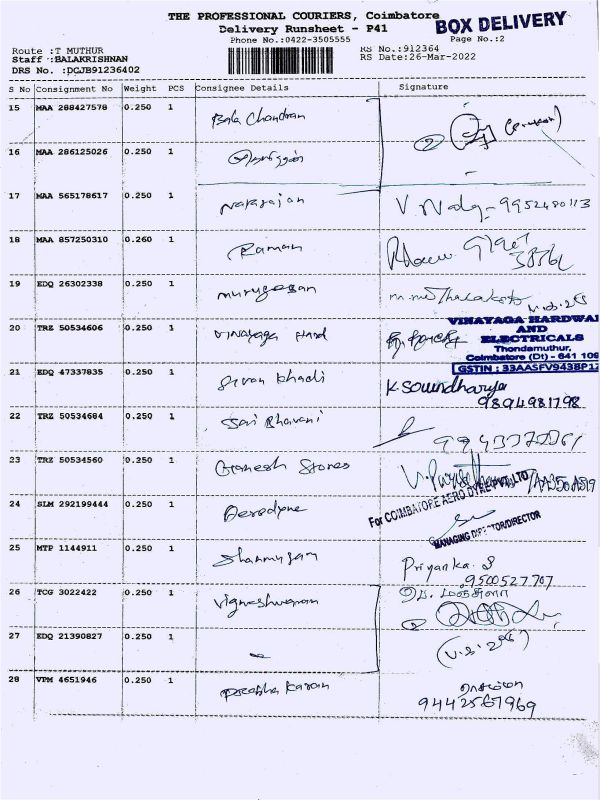 THE PROFESSIONAL COURIERS, Coimbatore
BOX DELIVERY
Delivery Runsheet - P41
Phone No.:0422-3505555
Page No.:2
Route :T MUTHUR
Staff :BALAKRISHNAN
DRS No. :DCJB91236402
RS No.:912364
RS Date:26-Mar-2022
S No Consignment No Weight PCS Consignee Details Signature
15 MAA 288427578 0.250 1 Bala Chandran
16 MAA 286125026 0.250 1
17 MAA 565178617 0.250 1 Natrajan 9952480113
18 MAA 857250310 0.260 1 Raman
19 EDQ 26302338 0.250 1 murugesan
20 TRZ 50534606 0.250 1 Vinayaga Hard
VINAYAGA HARDWA
AND
ELECTRICALS
Thondamuthur,
Coimbatore (Dt) - 641 109
GSTIN : 33AASFV9438P1Z
21 EDQ 47337835 0.250 1 K. Soundharya
9894981798
22 TRZ 50534684 0.250 1 Sai Bhavani
23 TRZ 50534560 0.250 1 Ganesh Stones
24 SLM 292199444 0.250 1 Aerodyne
For COIMBATORE AERO DYNE PVT LTD
MANAGING DIRECTOR/DIRECTOR
25 MTP 1144911 0.250 1 Shanmugam Priyanka. S
9500527707
26 TCG 3022422 0.250 1 Vigneshwaran
27 EDQ 21390827 0.250 1
28 VPM 4651946 0.250 1 Prabha Karan
9442567969